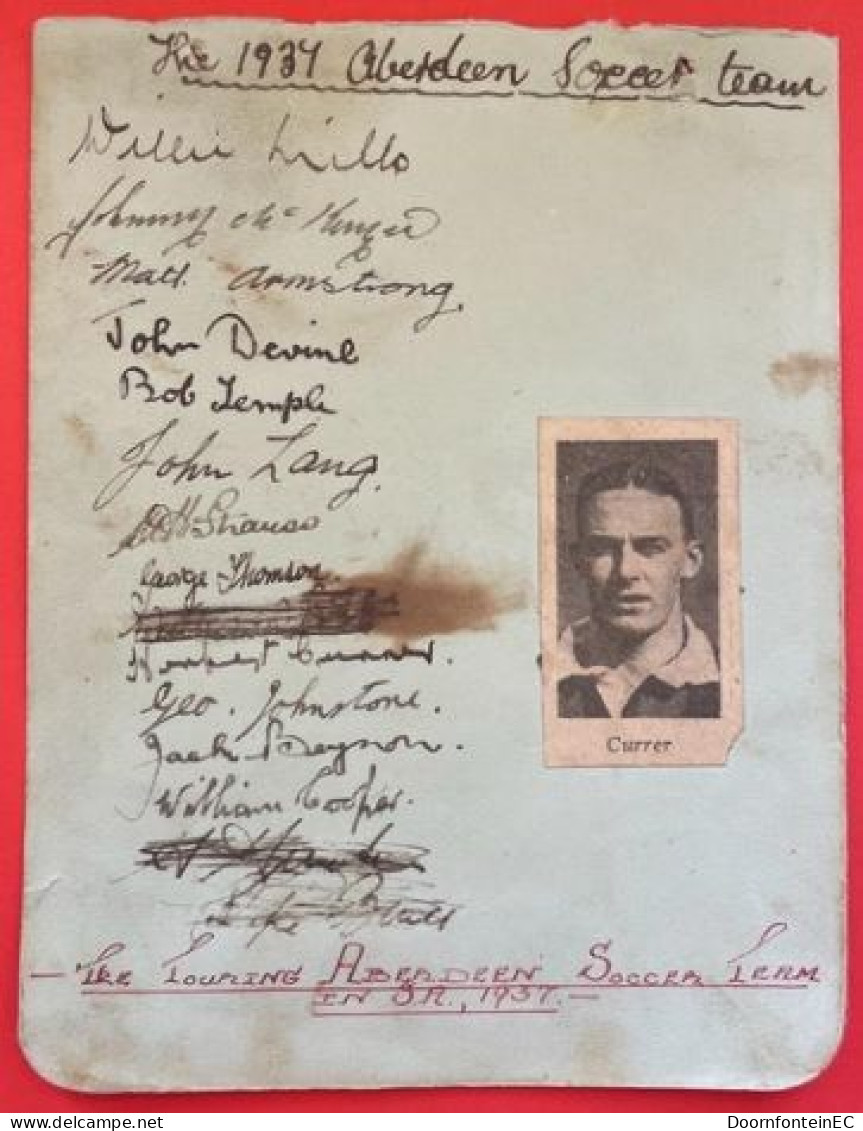 The 1937 Aberdeen Soccer team
Willie Mills
Johnny McKenzie
Matt. Armstrong.
John Devine
Bob Temple
John Lang.
Strauss
George Thomson.
Herbert Currer.
Geo. Johnstone.
Jack Beynon.
William Cooper.
Currer
- The Touring Aberdeen Soccer Team
in S.A., 1937. -
DoornfonteinEC